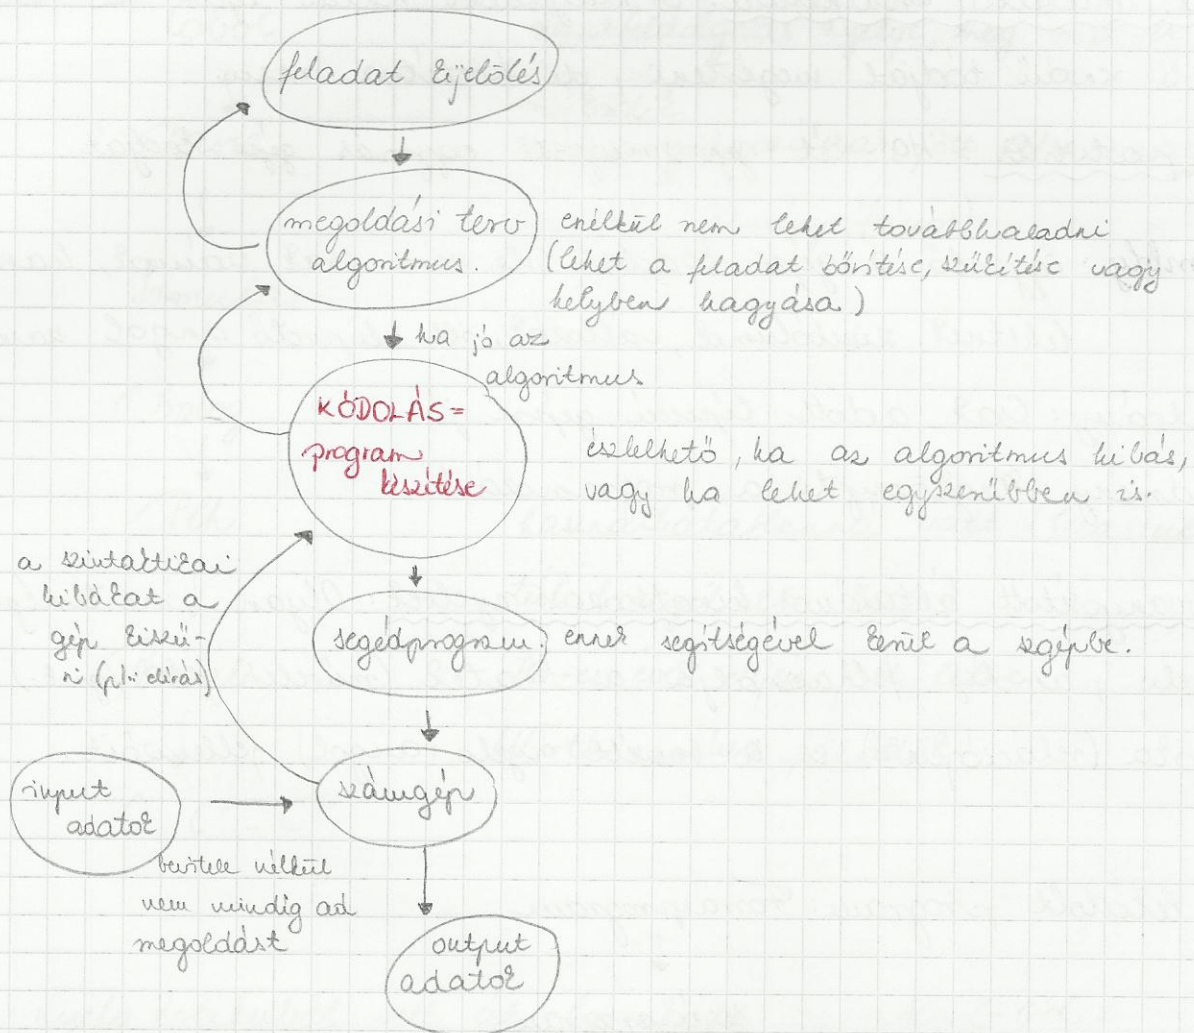 feladat kijelölés
megoldási terv
algoritmus.
enélkül nem lehet továbbhaladni
(lehet a feladat bővítése, szűkítése vagy
helyben hagyása)
ha jó az
algoritmus
KÓDOLÁS=
program
készítése
észlelhető, ha az algoritmus hibás,
vagy ha lehet egyszerűbben is.
a szintaktikai
hibákat a
gép kiszű-
ri (pl.: elírás)
segédprogram.
ennek segítségével kerül a szgépbe.
számgép
input
adatok
bevitele nélkül
nem mindig ad
megoldást
output
adatok